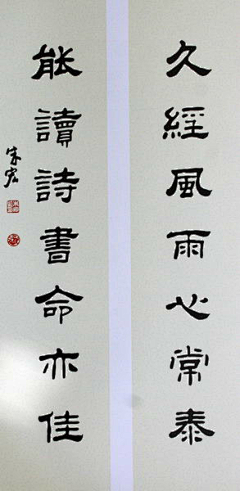 久經風雨心常泰
能讀詩書命亦佳
朱宏